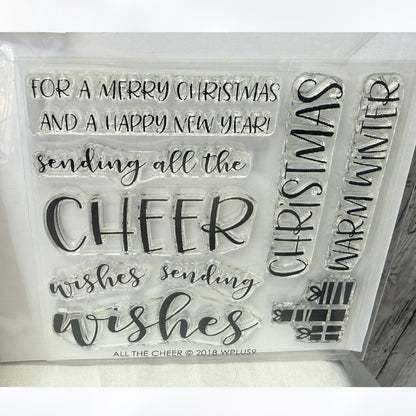 FOR A MERRY CHRISTMAS
AND A HAPPY NEW YEAR!
sending all the
CHEER
wishes sending
wishes
CHRISTMAS
WARM WINTER
ALL THE CHEER © 2018 WPLUS9